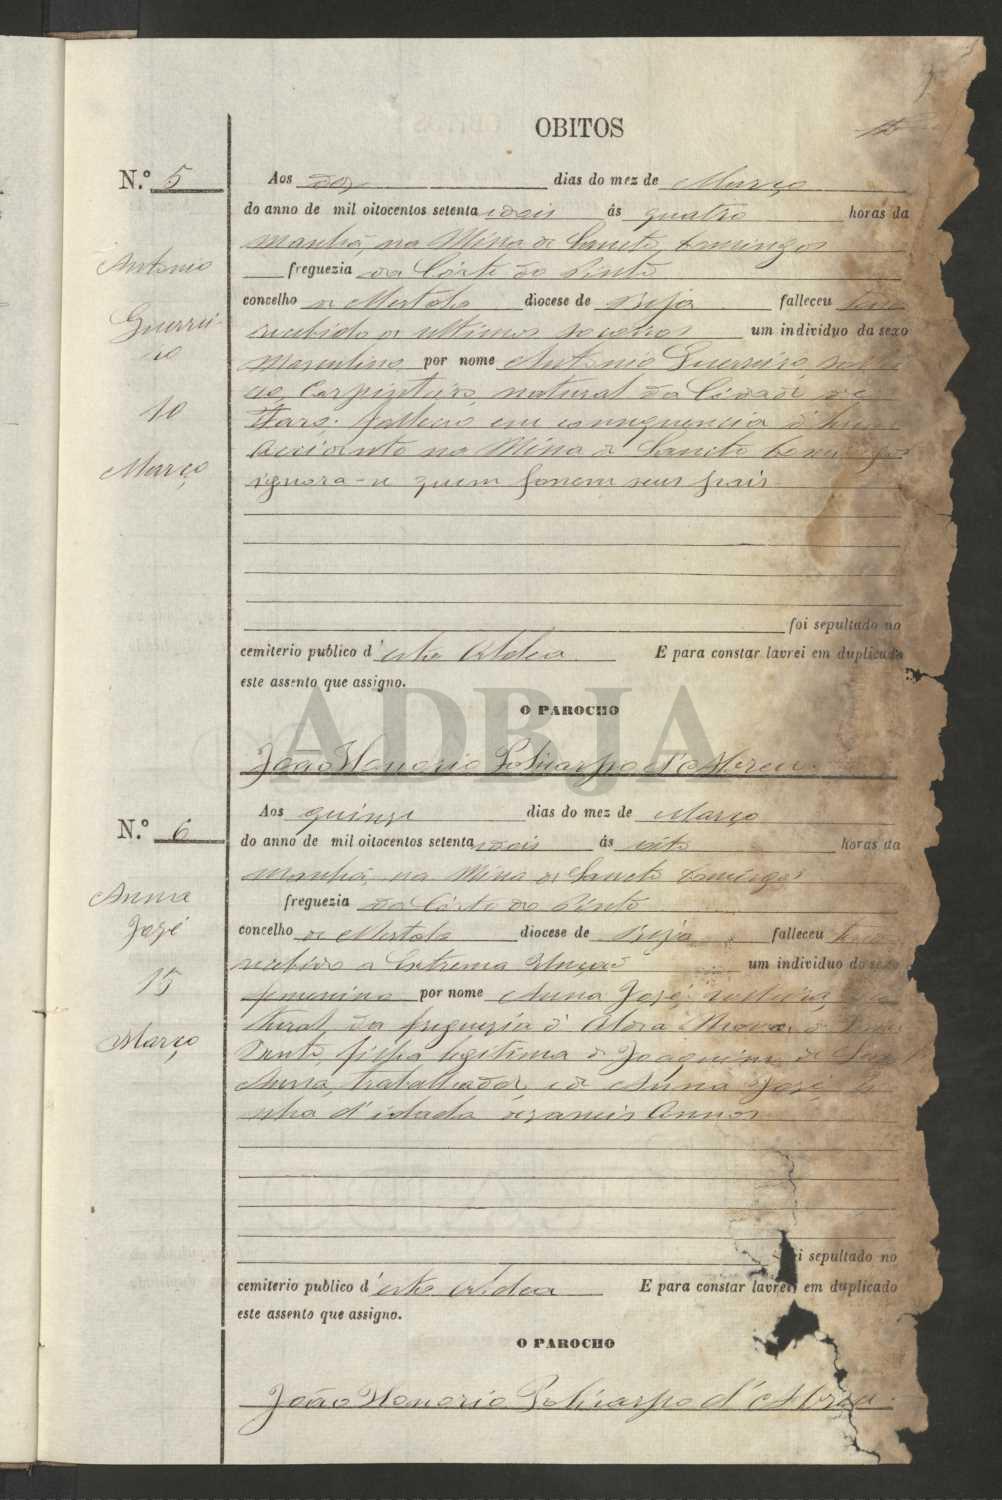 OBITOS
N.º 5
Antonio
Guerrei-
ro
10
Março
Aos dez dias do mez de Março
do anno de mil oitocentos setenta e dois ás quatro horas da
manhã, na Mina de Sancto Domingos
freguezia da Côrte do Pinto
concelho de Mertola diocese de Beja falleceu tendo
recebido os ultimos socorros um individuo da sexo
Masculino por nome Antonio Guerreiro, 
Carpinteiro, natural da Cidade de
Faro: falleceo em consequencia d'hum
accidente na Mina de Sancto Domingos
ignora-se quem fossem seus pais
foi sepultado no
cemiterio publico d'esta Aldea E para constar lavrei em duplicado
este assento que assigno.
O PAROCHO
ADBJA
João Honorio Policarpo d'Abreu.
N.º 6
Anna
José
15
Março
Aos quinze dias do mez de Março
do anno de mil oitocentos setenta e dois ás oito horas da
manhã, na Mina de Sancto Domingos
freguezia da Côrte do Pinto
concelho de Mertola diocese de Beja falleceu tendo
recebido a Extrema Unção um individuo do sexo
femenino por nome Anna José, solteira, na
tural da freguezia d'Aldea Nova de
Bento, filha legitima de Joaquim de
trabalhador, e de Anna José, ti
nha d'idade dezaseis Annos
foi sepultado no
cemiterio publico d'esta Aldea E para constar lavrei em duplicado
este assento que assigno.
O PAROCHO
João Honorio Policarpo d'Abreu.